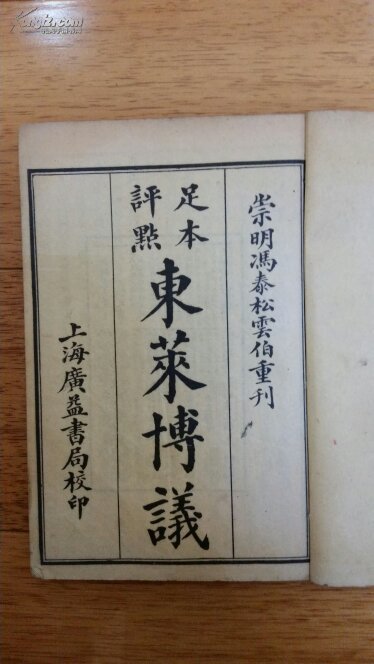 崇明馮泰松雲伯重刊
足本
評點
東萊博議
上海廣益書局校印